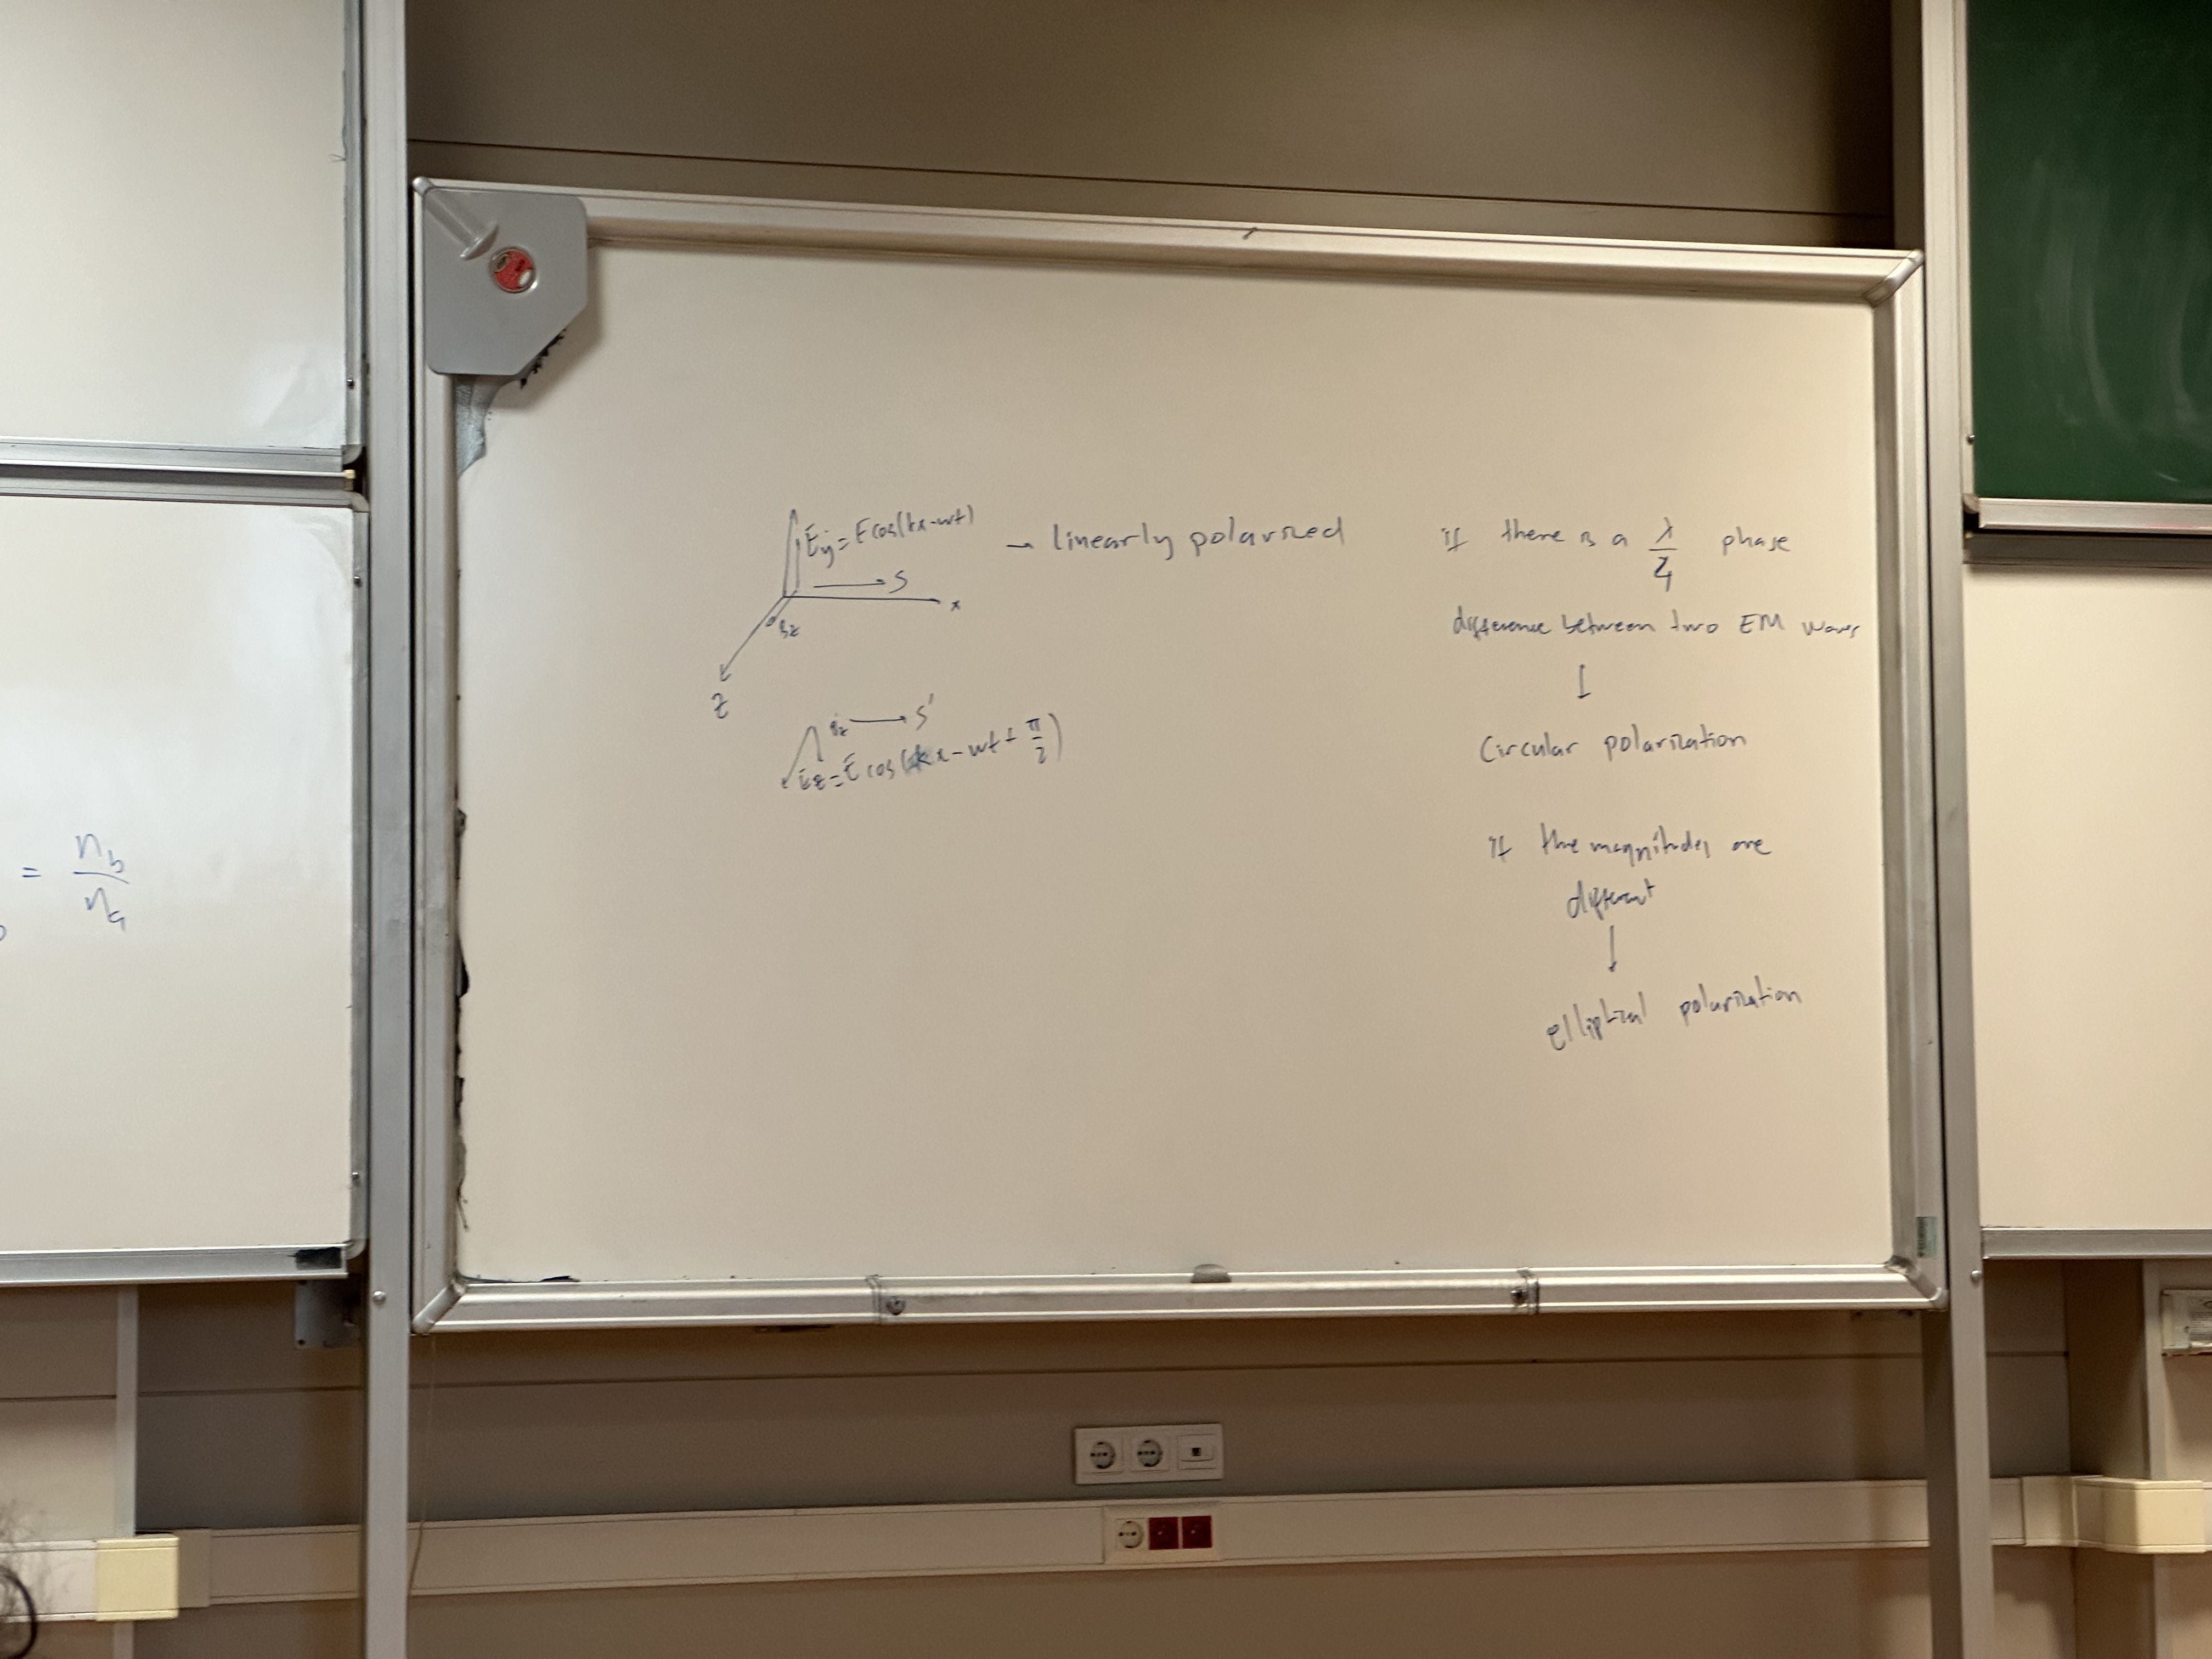 = n_b / n_a
E_y = E cos(kx - wt) → linearly polarized
S
x
B_z
z
S'
E_z = E cos(kx - wt + π/2)
if there is a λ/4 phase
difference between two EM waves
↓
Circular polarization
if the magnitudes are
different
↓
elliptical polarization